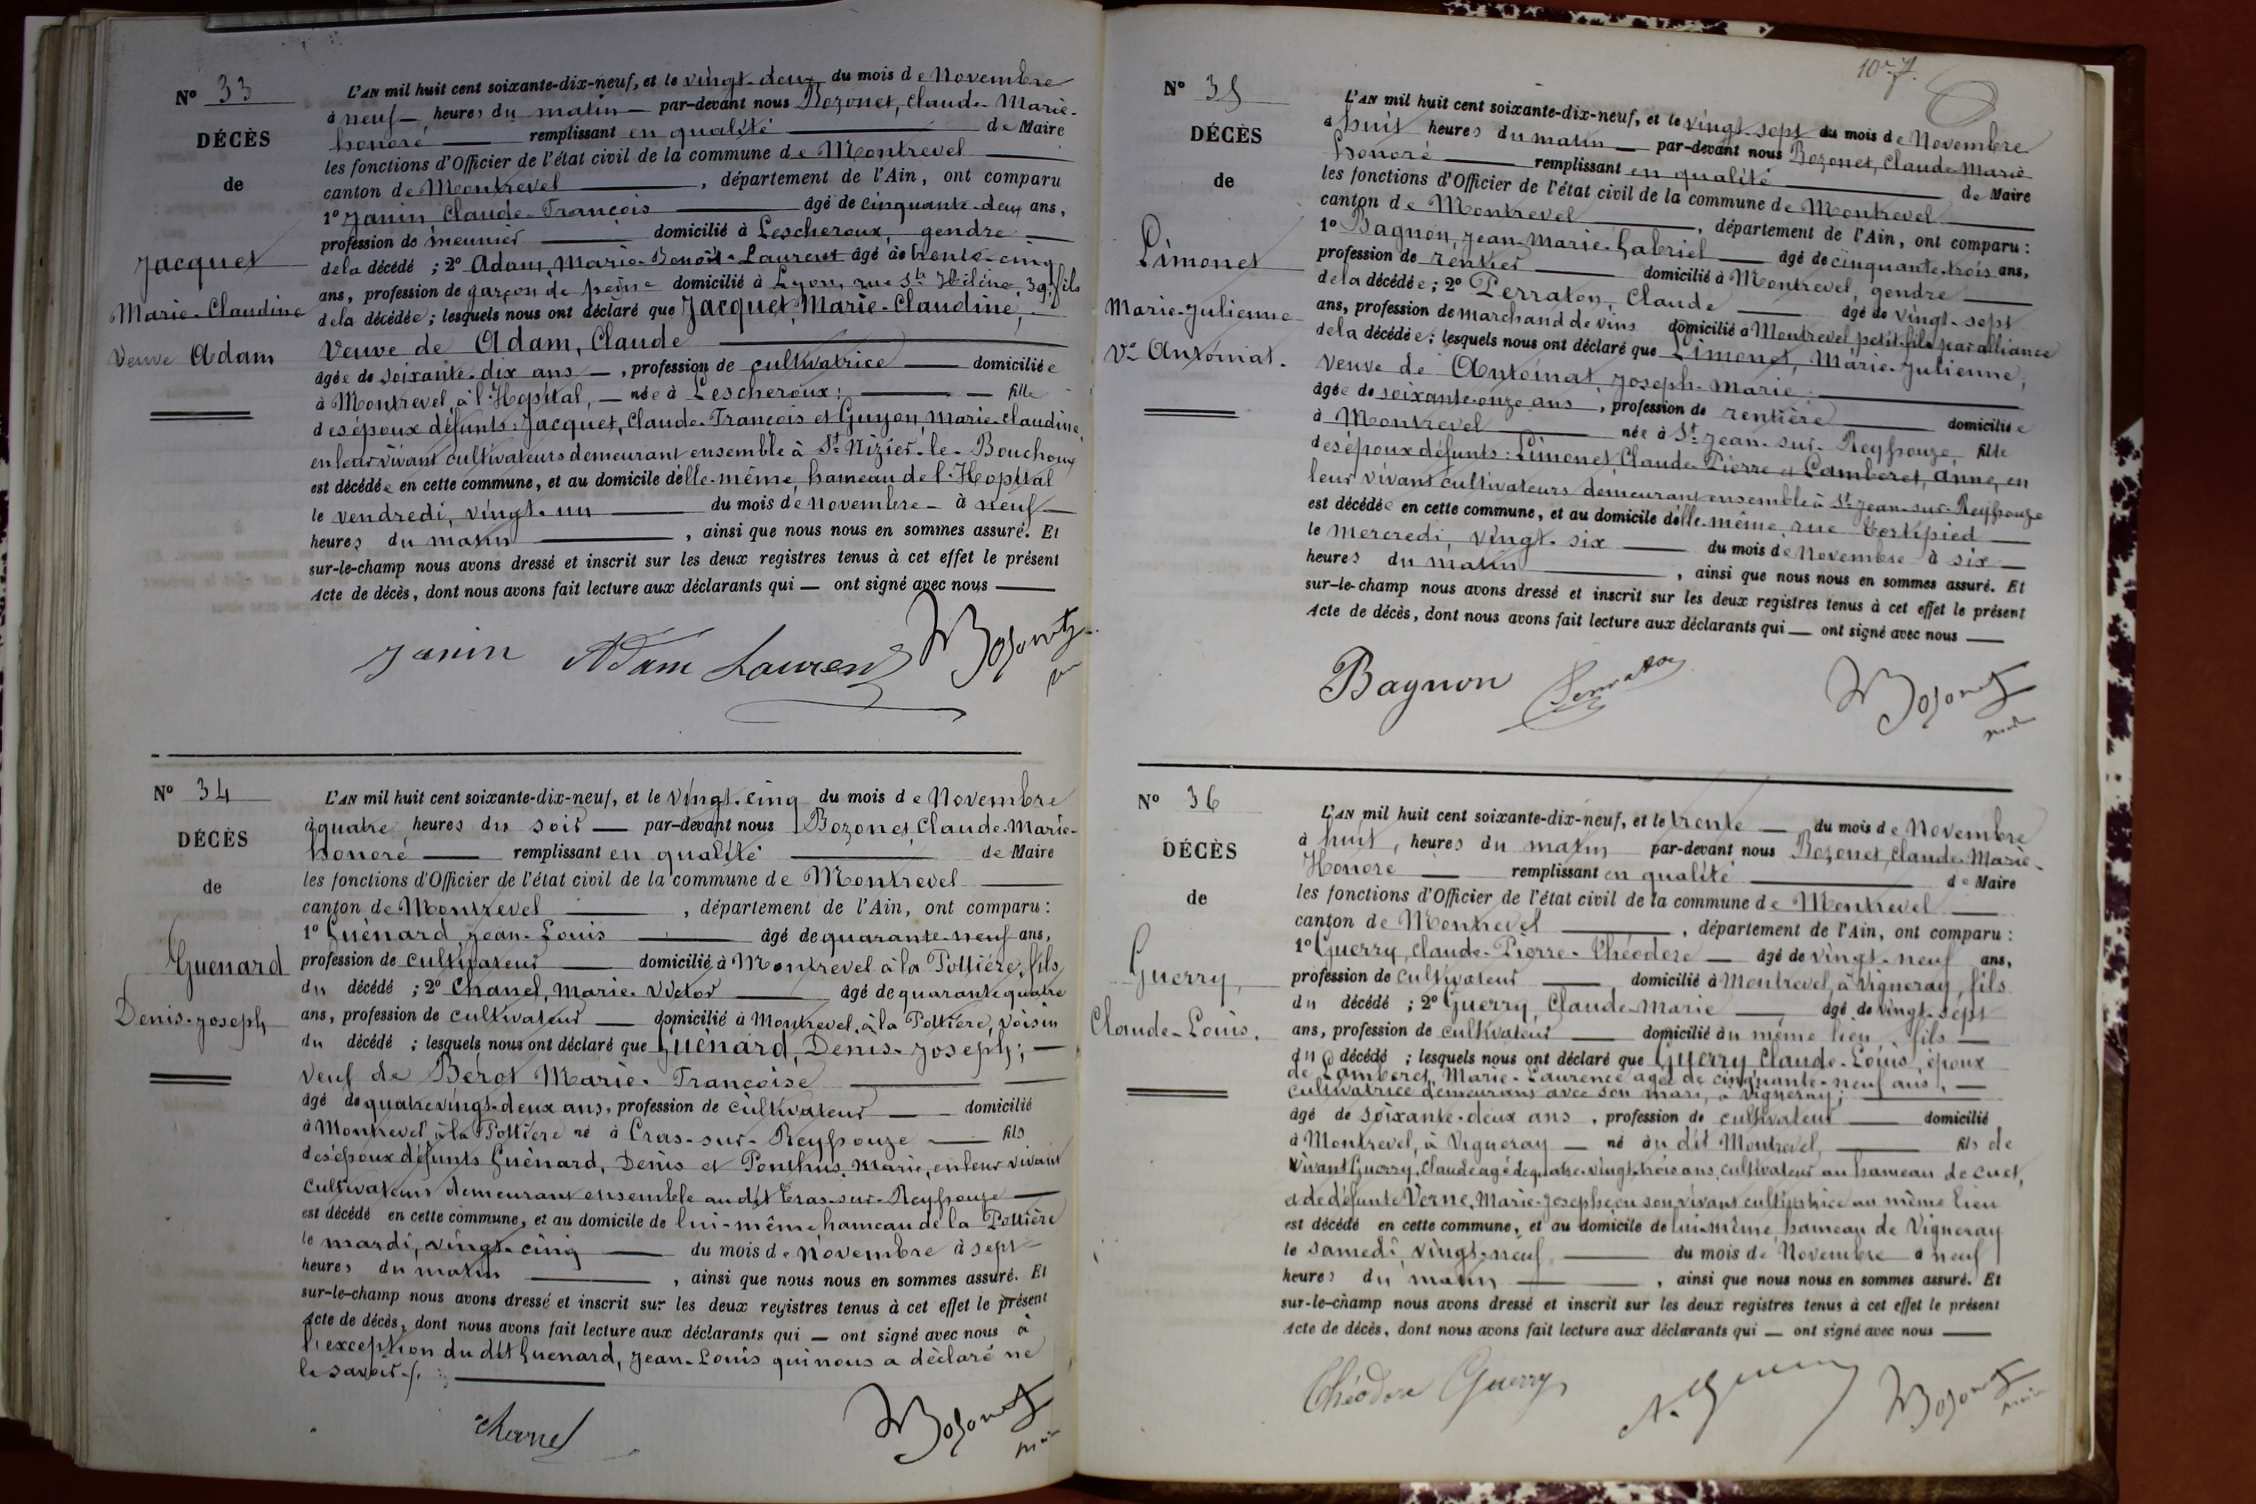 Nº 33
DÉCÈS
de
Jacquet
Marie-Claudine
Veuve Adam
L'AN mil huit cent soixante-dix-neuf, et le vingt-deux du mois de Novembre
à neuf, heures du matin — par-devant nous Bozonet, Claude-Marie-
honoré — remplissant en qualité — de Maire
les fonctions d'Officier de l'état civil de la commune de Montrevel —
canton de Montrevel —, département de l'Ain, ont comparu
1º Janin Claude-François — âgé de cinquante-deux ans,
profession de meunier — domicilié à Lescheroux, gendre —
de la décédé ; 2º Adam, Marie-Benoît-Laurent âgé de trente-cinq
ans, profession de garçon de peine domicilié à Lyon, rue Ste Hélène, 39, fils
de la décédée ; lesquels nous ont déclaré que Jacquet, Marie-Claudine, —
Veuve de Adam, Claude —
âgée de soixante-dix ans —, profession de cultivatrice — domiciliée
à Montrevel, à l'Hopital, — née à Lescheroux ; — fille
des époux défunts : Jacquet, Claude-François et Guyon, Marie-Claudine,
en leur vivant cultivateurs demeurant ensemble à St Nizier-le-Bouchoux
est décédée en cette commune, et au domicile d'elle-même, hameau de l'Hopital
le vendredi, vingt-un — du mois de novembre — à neuf —
heures du matin —, ainsi que nous nous en sommes assuré. Et
sur-le-champ nous avons dressé et inscrit sur les deux registres tenus à cet effet le présent
Acte de décès, dont nous avons fait lecture aux déclarants qui — ont signé avec nous —
Janin Adam Laurent Bozonet
Nº 34
DÉCÈS
de
Guenard
Denis-Joseph
L'AN mil huit cent soixante-dix-neuf, et le vingt-cinq du mois de Novembre
à quatre heures du soir — par-devant nous Bozonet, Claude-Marie-
honoré — remplissant en qualité — de Maire
les fonctions d'Officier de l'état civil de la commune de Montrevel —
canton de Montrevel —, département de l'Ain, ont comparu :
1º Guènard, Jean-Louis — âgé de quarante-neuf ans,
profession de cultivateur — domicilié à Montrevel à la Poltière, fils
du décédé ; 2º Chanel, Marie-Victor — âgé de quarante quatre
ans, profession de cultivateur — domicilié à Montrevel, à la Poltière, voisin
du décédé ; lesquels nous ont déclaré que Guènard, Denis-Joseph ; —
Veuf de Berot Marie-Françoise —
âgé de quatre vingt-deux ans, profession de cultivateur — domicilié
à Montrevel à la Poltière né à Cras-sur-Reyssouze — fils
des époux défunts Guènard, Denis et Ponthus, Marie, en leur vivant
cultivateurs demeurant ensemble au dit Cras-sur-Reyssouze —
est décédé en cette commune, et au domicile de lui-même hameau de la Poltière
le mardi, vingt-cinq — du mois de Novembre à sept —
heures du matin —, ainsi que nous nous en sommes assuré. Et
sur-le-champ nous avons dressé et inscrit sur les deux registres tenus à cet effet le présent
Acte de décès, dont nous avons fait lecture aux déclarants qui — ont signé avec nous à
l'exception du dit Guenard, Jean-Louis qui nous a déclaré ne
le savoir. —
Chanel Bozonet
10-7.
Nº 35
DÉCÈS
de
Limonet
Marie-Julienne
Ve Antoinat.
L'AN mil huit cent soixante-dix-neuf, et le vingt-sept du mois de Novembre
à huit heures du matin — par-devant nous Bozonet, Claude-Marie
honoré — remplissant en qualité — de Maire
les fonctions d'Officier de l'état civil de la commune de Montrevel —
canton de Montrevel —, département de l'Ain, ont comparu :
1º Bagnon, Jean-Marie-Gabriel — âgé de cinquante-trois ans,
profession de rentier — domicilié à Montrevel, gendre —
de la décédée ; 2º Perraton, Claude — âgé de vingt-sept
ans, profession de marchand de vins domicilié à Montrevel petit-fils par alliance
de la décédée ; lesquels nous ont déclaré que Limonet, Marie-Julienne,
Veuve de Antoinat Joseph-Marie —
âgée de soixante-onze ans, profession de rentière — domiciliée
à Montrevel — née à St Jean-sur-Reyssouze — fille
des époux défunts : Limonet Claude-Pierre et Lamberet, Anne, en
leur vivant cultivateurs demeurant ensemble à St Jean-sur-Reyssouze
est décédée en cette commune, et au domicile d'elle-même rue Tortipied —
le mercredi, vingt-six — du mois de Novembre à six —
heures du matin —, ainsi que nous nous en sommes assuré. Et
sur-le-champ nous avons dressé et inscrit sur les deux registres tenus à cet effet le présent
Acte de décès, dont nous avons fait lecture aux déclarants qui — ont signé avec nous —
Bagnon Perraton Bozonet
Nº 36
DÉCÈS
de
Guerry,
Claude-Louis.
L'AN mil huit cent soixante-dix-neuf, et le trente — du mois de Novembre
à huit, heures du matin par-devant nous Bozonet, Claude-Marie-
Honoré — remplissant en qualité — de Maire
les fonctions d'Officier de l'état civil de la commune de Montrevel —
canton de Montrevel —, département de l'Ain, ont comparu :
1º Guerry, Claude-Pierre-Théodore — âgé de vingt-neuf ans,
profession de cultivateur — domicilié à Montrevel, à Vigneray, fils
du décédé ; 2º Guerry, Claude-Marie — âgé de vingt-sept
ans, profession de cultivateur — domicilié au même lieu, fils —
du décédé ; lesquels nous ont déclaré que Guerry Claude-Louis, époux
de Lamberet, Marie-Laurence agée de cinquante-neuf ans, —
cultivatrice demeurant avec son mari, à Vigneray ; —
âgé de soixante-deux ans, profession de cultivateur — domicilié
à Montrevel, à Vigneray — né au dit Montrevel, — fils de
vivant Guerry, Claude agé de quatre-vingt-trois ans, cultivateur au hameau de Cuet,
et de défunte Verne, Marie-Josephe en son vivant cultivatrice au même lieu
est décédé en cette commune, et au domicile de lui-même, hameau de Vigneray
le samedi vingt-neuf — du mois de Novembre à neuf
heures du matin —, ainsi que nous nous en sommes assuré. Et
sur-le-champ nous avons dressé et inscrit sur les deux registres tenus à cet effet le présent
Acte de décès, dont nous avons fait lecture aux déclarants qui — ont signé avec nous —
Théodore Guerry Bozonet